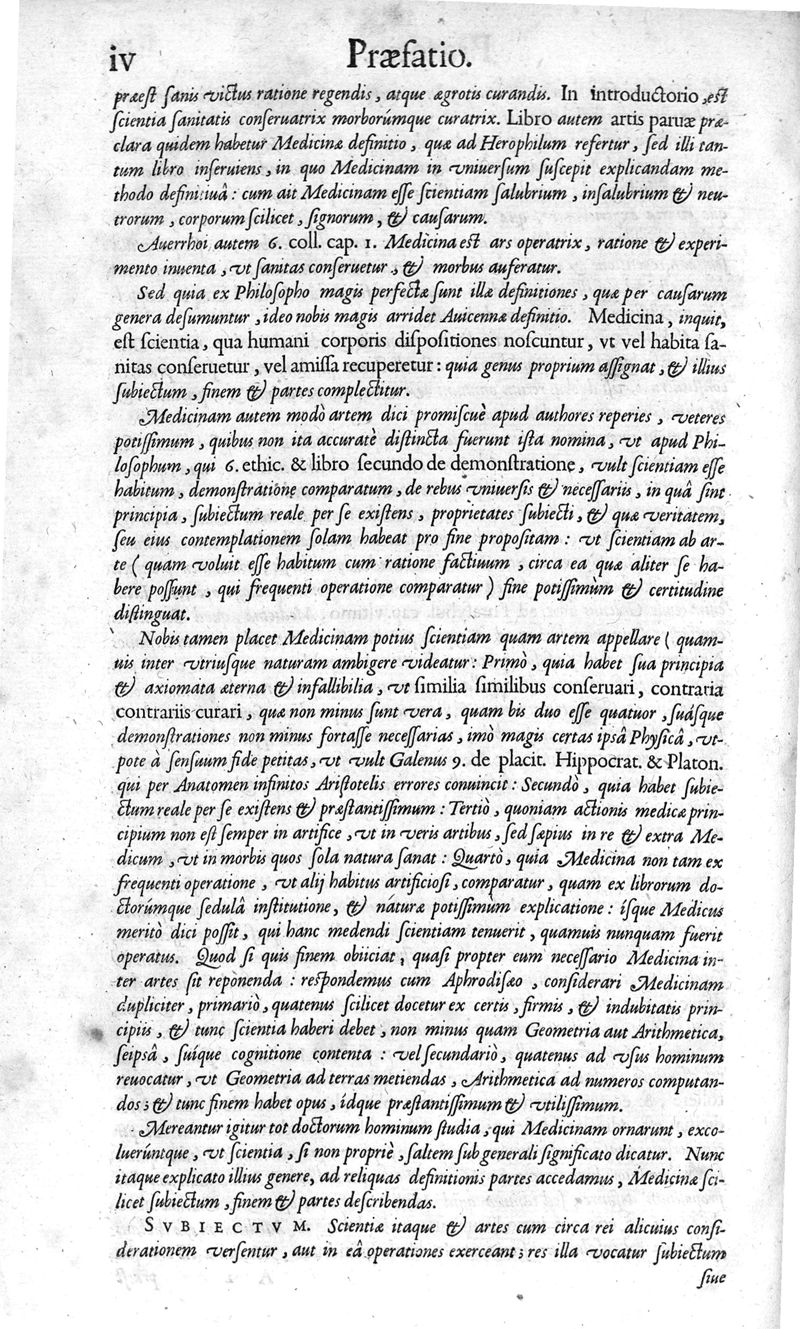 iv
Præfatio.
præest sanis victus ratione regendis, atque ægrotis curandis. In introductorio, est
scientia sanitatis conseruatrix morborúmque curatrix. Libro autem artis paruæ præ-
clara quidem habetur Medicinæ definitio, quæ ad Herophilum refertur, sed illi tan-
tum libro inseruiens, in quo Medicinam in vniuersum suscepit explicandam me-
thodo definitiuâ: cum ait Medicinam esse scientiam salubrium, insalubrium & neu-
trorum, corporum scilicet, signorum, & causarum.
Auerrhoi autem 6. coll. cap. 1. Medicina est ars operatrix, ratione & experi-
mento inuenta, vt sanitas conseruetur, & morbus auferatur.
Sed quia ex Philosopho magis perfectæ sunt illæ definitiones, quæ per causarum
genera desumuntur, ideo nobis magis arridet Auicennæ definitio. Medicina, inquit,
est scientia, qua humani corporis dispositiones noscuntur, vt vel habita sa-
nitas conseruetur, vel amissa recuperetur: quia genus proprium assignat, & illius
subiectum, finem & partes complectitur.
Medicinam autem modò artem dici promiscuè apud authores reperies, veteres
potissimum, quibus non ita accuratè distincta fuerunt ista nomina, vt apud Phi-
losophum, qui 6. ethic. & libro secundo de demonstratione, vult scientiam esse
habitum, demonstratione comparatum, de rebus vniuersis & necessariis, in quâ sint
principia, subiectum reale per se existens, proprietates subiecti, & quæ veritatem,
seu eius contemplationem solam habeat pro fine propositam: vt scientiam ab ar-
te ( quam voluit esse habitum cum ratione factiuum, circa ea quæ aliter se ha-
bere possunt, qui frequenti operatione comparatur ) fine potissimùm & certitudine
distinguat.
Nobis tamen placet Medicinam potius scientiam quam artem appellare ( quam-
uis inter vtriusque naturam ambigere videatur: Primò, quia habet sua principia
& axiomata æterna & infallibilia, vt similia similibus conseruari, contraria
contrariis curari, quæ non minus sunt vera, quam bis duo esse quatuor, suásque
demonstrationes non minus fortasse necessarias, imò magis certas ipsâ Physicâ, vt-
pote à sensuum fide petitas, vt vult Galenus 9. de placit. Hippocrat. & Platon.
qui per Anatomen infinitos Aristotelis errores conuincit: Secundò, quia habet subie-
ctum reale per se existens & præstantissimum: Tertiò, quoniam actionis medicæ prin-
cipium non est semper in artifice, vt in veris artibus, sed sæpius in re & extra Me-
dicum, vt in morbis quos sola natura sanat: Quartò, quia Medicina non tam ex
frequenti operatione, vt alij habitus artificiosi, comparatur, quam ex librorum do-
ctorúmque sedulâ institutione, & náturæ potissimùm explicatione: ísque Medicus
meritò dici possit, qui hanc medendi scientiam tenuerit, quamuis nunquam fuerit
operatus. Quod si quis finem obiiciat, quasi propter eum necessario Medicina in-
ter artes sit reponenda: respondemus cum Aphrodisæo, considerari Medicinam
dupliciter, primariò, quatenus scilicet docetur ex certis, firmis, & indubitatis prin-
cipiis, & tunc scientia haberi debet, non minus quam Geometria aut Arithmetica,
seipsâ, suíque cognitione contenta: vel secundariò, quatenus ad vsus hominum
reuocatur, vt Geometria ad terras metiendas, Arithmetica ad numeros computan-
dos; & tunc finem habet opus, ídque præstantissimum & vtilissimum.
Mereantur igitur tot doctorum hominum studia, qui Medicinam ornarunt, exco-
luerúntque, vt scientia, si non propriè, saltem sub generali significato dicatur. Nunc
itaque explicato illius genere, ad reliquas definitionis partes accedamus, Medicinæ sci-
licet subiectum, finem & partes describendas.
SVBIECTVM. Scientiæ itaque & artes cum circa rei alicuius consi-
derationem versentur, aut in eâ operationes exerceant; res illa vocatur subiectum
siue